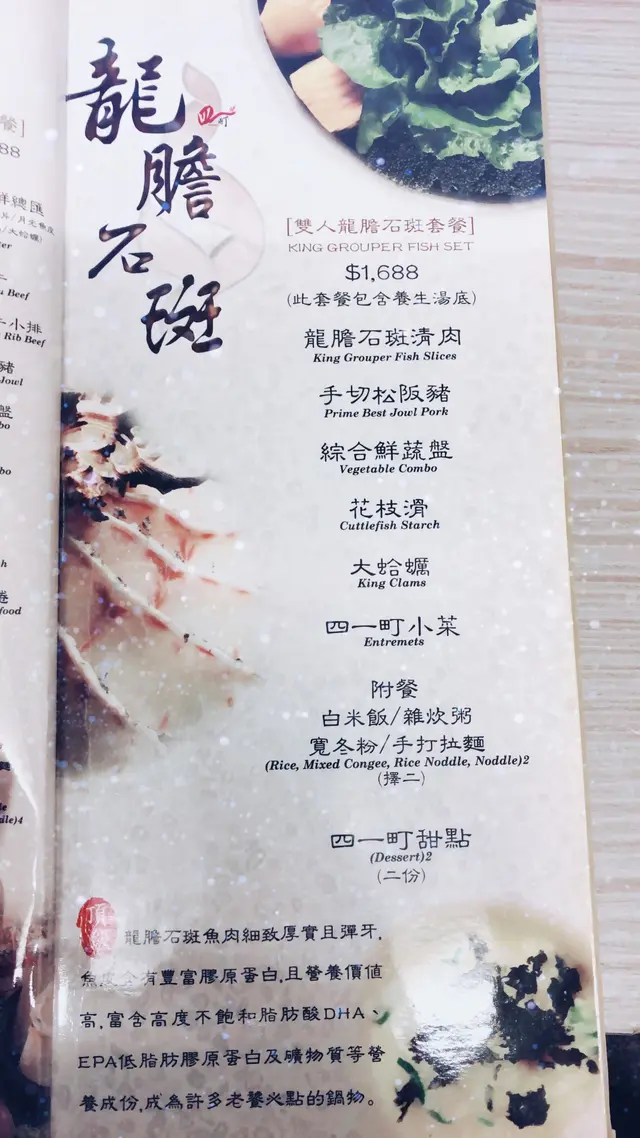 餐]
88
鮮總匯
u Beef
牛小排
Rib Beef
豬
Jowl
盤
bo
bo
h
捲
food
龍膽石斑
四一町
[雙人龍膽石斑套餐]
KING GROUPER FISH SET
$1,688
(此套餐包含養生湯底)
龍膽石斑清肉
King Grouper Fish Slices
手切松阪豬
Prime Best Jowl Pork
綜合鮮蔬盤
Vegetable Combo
花枝滑
Cuttlefish Starch
大蛤蠣
King Clams
四一町小菜
Entremets
附餐
白米飯/雜炊粥
寬冬粉/手打拉麵
(Rice, Mixed Congee, Rice Noddle, Noddle)2
(擇二)
四一町甜點
(Dessert)2
(二份)
頂級
龍膽石斑魚肉細致厚實且彈牙,
魚皮含有豐富膠原蛋白,且營養價值
高,富含高度不飽和脂肪酸DHA、
EPA低脂肪膠原蛋白及礦物質等營
養成份,成為許多老饕必點的鍋物。